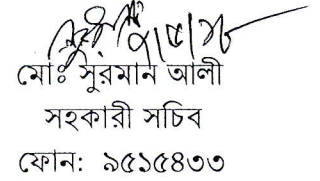 মোঃ সুরমান আলী
সহকারী সচিব
ফোন: ৯৫১৫৪৩৩